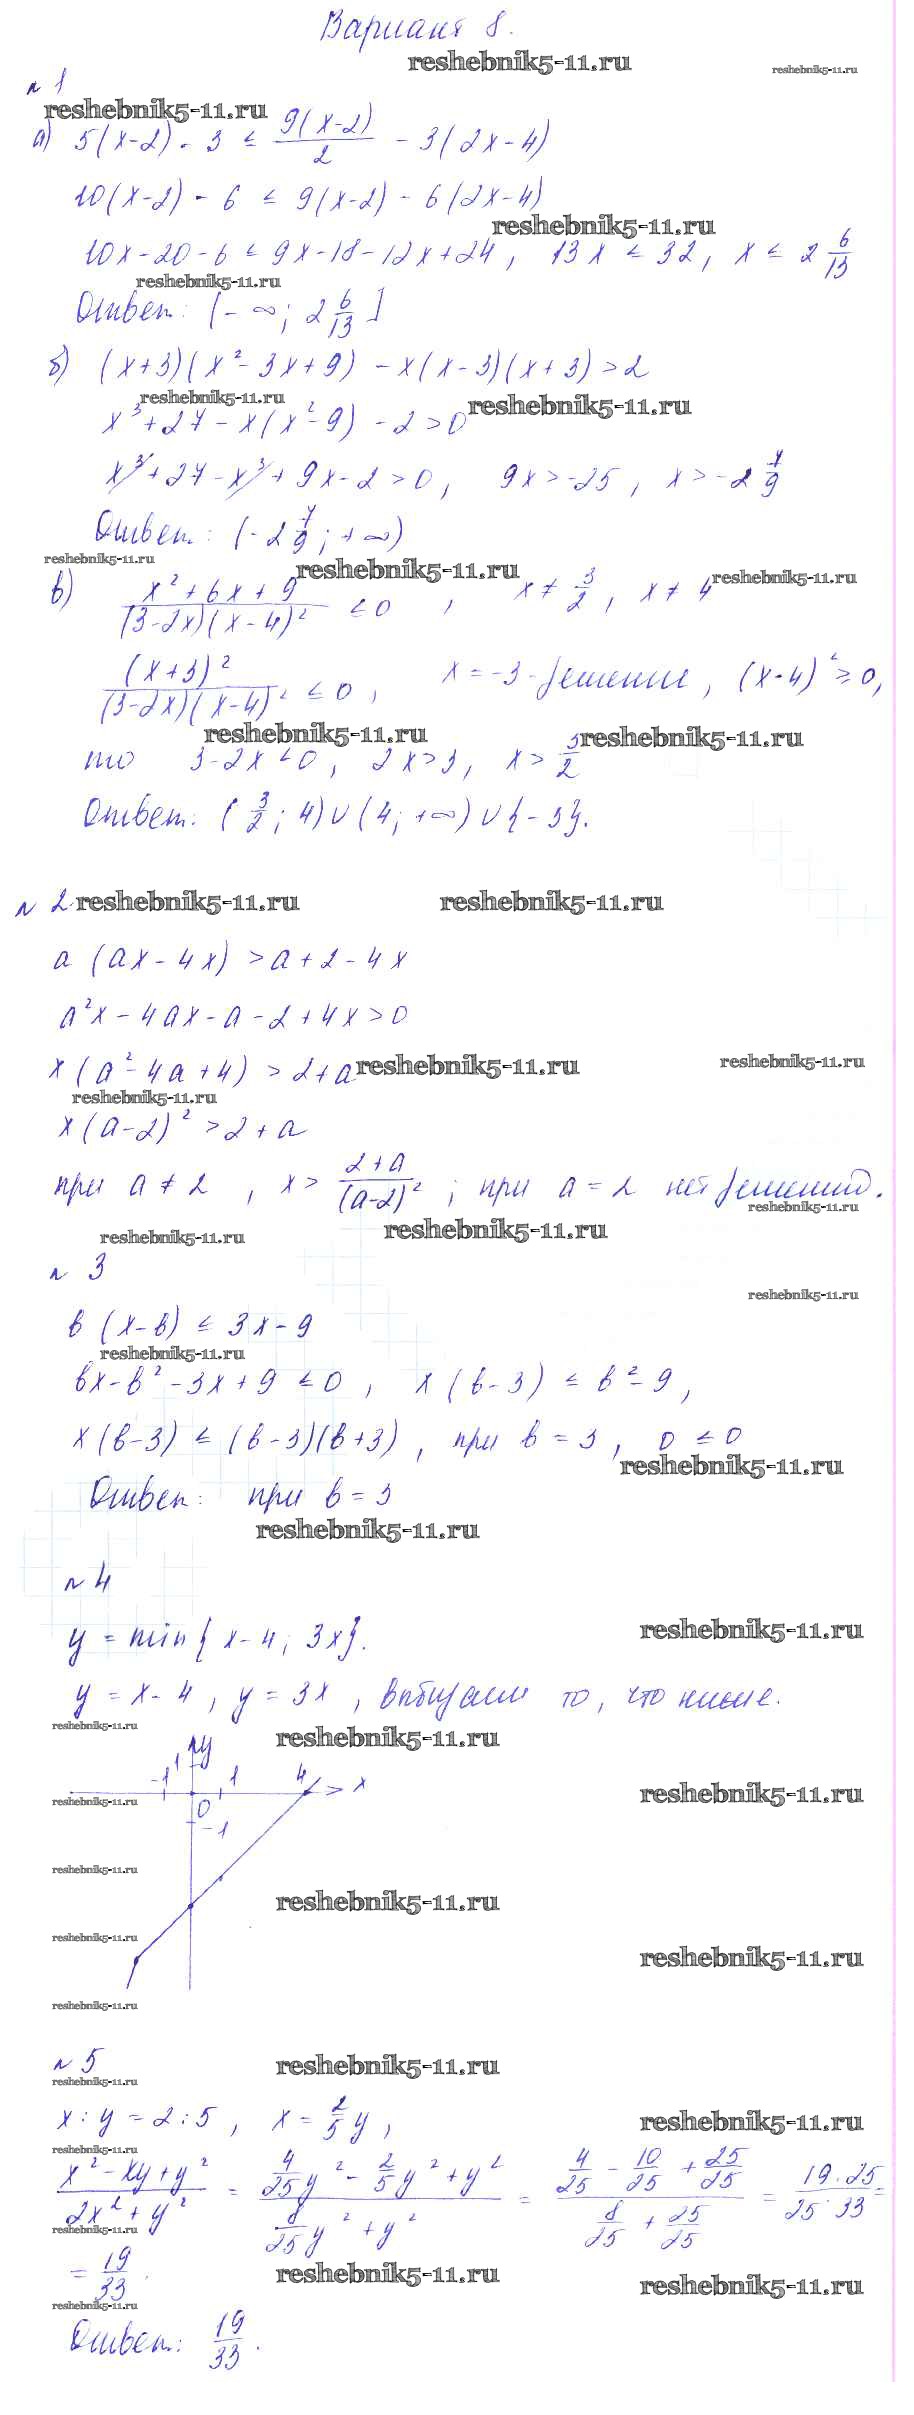 Вариант 8.
reshebnik5-11.ru reshebnik5-11.ru
№ 1
reshebnik5-11.ru
а) 5(x-2) - 3 ≤ 9(x-2)/2 - 3(2x-4)
10(x-2) - 6 ≤ 9(x-2) - 6(2x-4)
reshebnik5-11.ru
10x-20-6 ≤ 9x-18-12x+24, 13x ≤ 32, x ≤ 2 6/13
reshebnik5-11.ru
Ответ: (-∞; 2 6/13]
б) (x+3)(x²-3x+9) - x(x-3)(x+3) > 2
reshebnik5-11.ru reshebnik5-11.ru
x³+27-x(x²-9) -2>0
x³+27-x³+9x-2>0, 9x>-25, x>-2 7/9
Ответ: (-2 7/9; +∞)
reshebnik5-11.ru reshebnik5-11.ru reshebnik5-11.ru
в) x²+6x+9/(3-2x)(x-4)² ≤ 0, x ≠ 3/2, x ≠ 4
(x+3)²/(3-2x)(x-4)² ≤ 0, x = -3 - решение, (x-4)² ≥ 0,
reshebnik5-11.ru reshebnik5-11.ru
то 3-2x<0, 2x>3, x> 3/2
Ответ: (3/2; 4)∪(4; +∞)∪{-3}.
№ 2 reshebnik5-11.ru reshebnik5-11.ru
a (ax-4x) > a+2-4x
a²x-4ax-a-2+4x>0
x(a²-4a+4) > 2+a reshebnik5-11.ru reshebnik5-11.ru
reshebnik5-11.ru
x(a-2)² > 2+a
при a ≠ 2, x > 2+a/(a-2)²; при a = 2 нет решений.
reshebnik5-11.ru
reshebnik5-11.ru reshebnik5-11.ru
№ 3
reshebnik5-11.ru
в (x-в) ≤ 3x-9
reshebnik5-11.ru
вx-в²-3x+9 ≤ 0, x(в-3) ≤ в²-9,
x(в-3) ≤ (в-3)(в+3), при в = 3, 0 ≤ 0
reshebnik5-11.ru
Ответ: при в = 3
reshebnik5-11.ru
№ 4
y = min{x-4; 3x}. reshebnik5-11.ru
y = x-4, y = 3x, выбираем то, что ниже.
reshebnik5-11.ru reshebnik5-11.ru
1 y
-1 1 4 x
reshebnik5-11.ru reshebnik5-11.ru
0
-1
reshebnik5-11.ru
reshebnik5-11.ru
reshebnik5-11.ru reshebnik5-11.ru
reshebnik5-11.ru
№ 5 reshebnik5-11.ru
reshebnik5-11.ru
x : y = 2 : 5, x = 2/5 y, reshebnik5-11.ru
reshebnik5-11.ru
x²-xy+y²/2x²+y² = 4/25y² - 2/5y² + y²/8/25y² + y² = 4/25 - 10/25 + 25/25/8/25 + 25/25 = 19·25/25·33 =
reshebnik5-11.ru
= 19/33. reshebnik5-11.ru reshebnik5-11.ru
reshebnik5-11.ru
Ответ: 19/33.